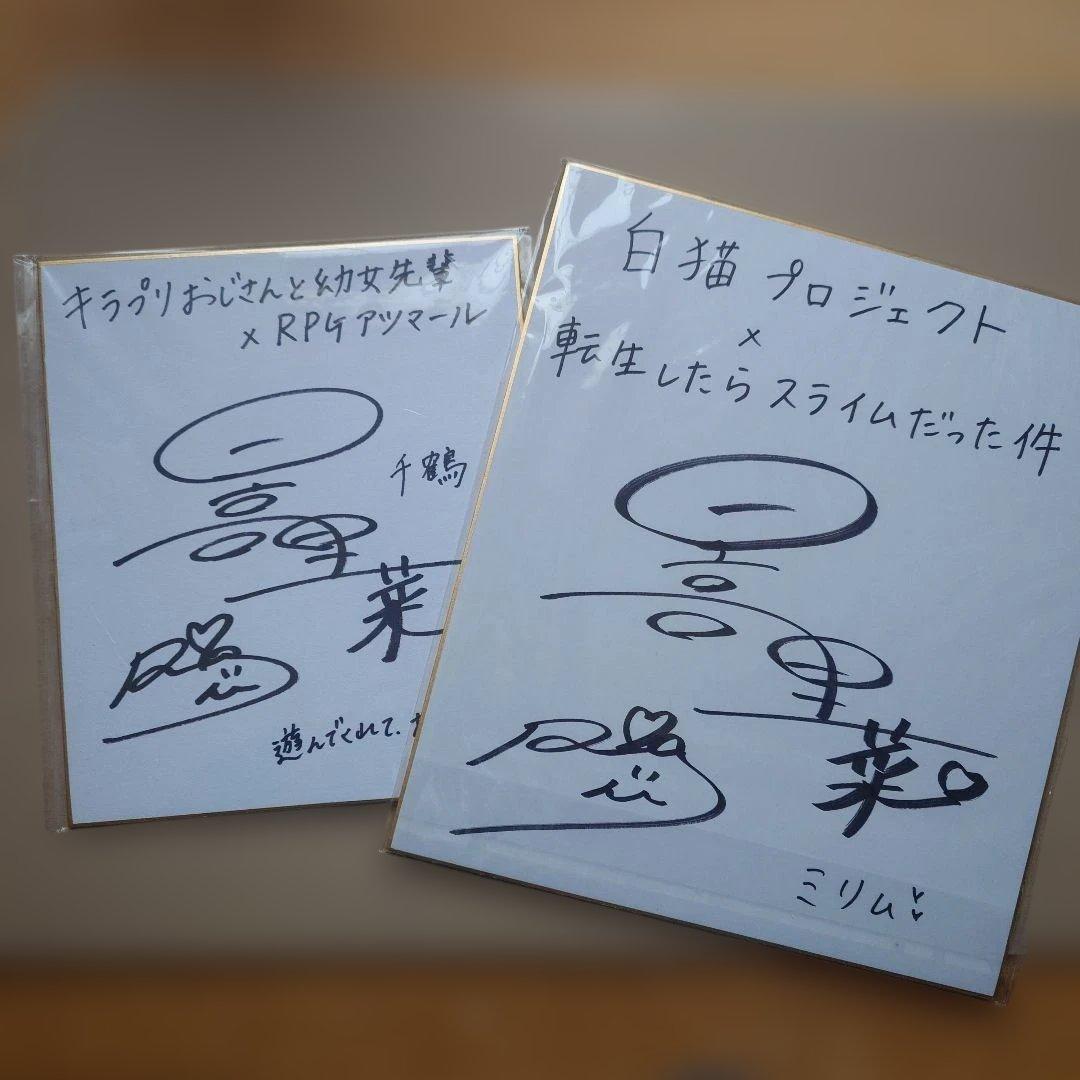 キラプリおじさんと幼女先輩
×RPGアツマール
千鶴
菜
遊んでくれて、
白猫プロジェクト
×
転生したらスライムだった件
里菜♡
ミリム